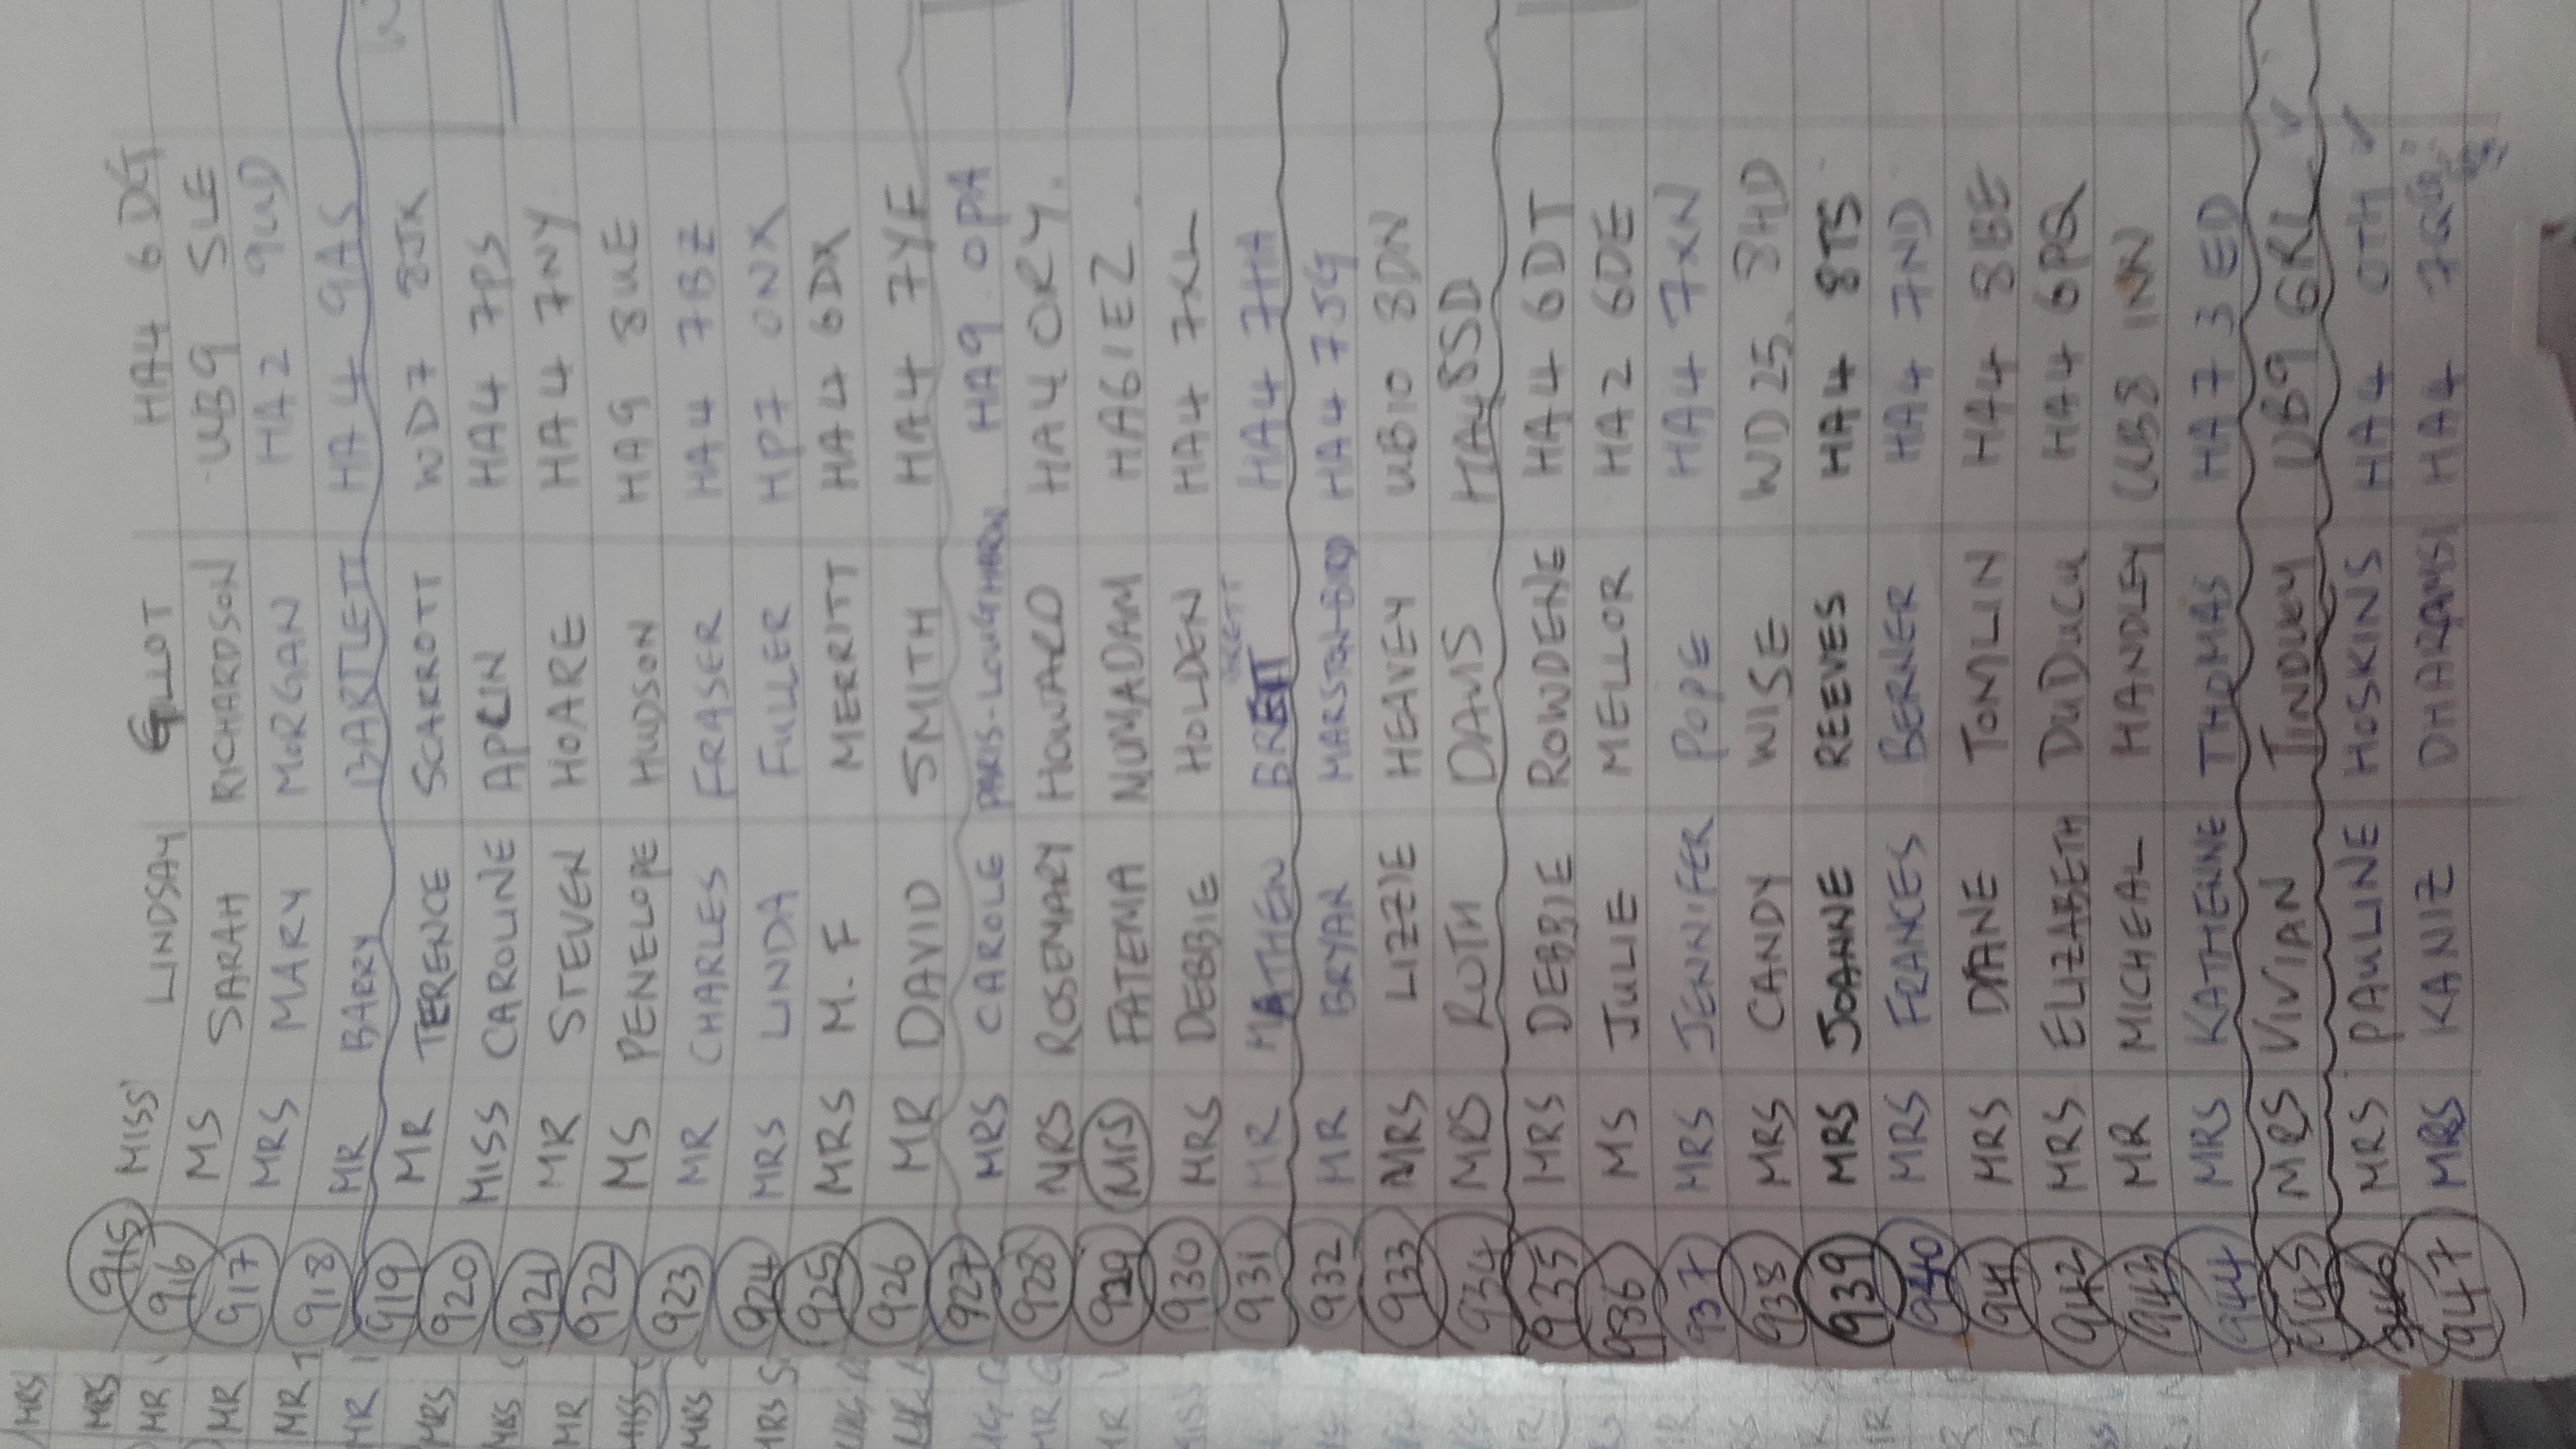 915 MISS LINDSAY GILLOT HA4 6DG
916 MS SARAH RICHARDSON UB9 5LE
917 MRS MARY MORGAN HA2 9UD
918 MR BARRY BARTLETT HA4 9AS
919 MR TERENCE SCARROTT WD7 8JX
920 MISS CAROLINE APLIN HA4 7PS
921 MR STEVEN HOARE HA4 7NY
922 MS PENELOPE HUDSON HA9 8UE
923 MR CHARLES FRASER HA4 7BZ
924 MRS LINDA FULLER HP7 0NX
925 MRS M. F MERRITT HA4 6DX
926 MR DAVID SMITH HA4 7YF
927 MRS CAROLE HA9 0PA
928 MRS ROSEMARY HOWARD HA4 0RY.
929 MRS FATEMA NUMADAM HA6 1EZ
930 MRS DEBBIE HOLDEN HA4 7XL
BRETT
931 MR MATHEW BRETT HA4 7HA
932 MR BRYAN MARSTON-BIRD HA4 7JG
933 MRS LIZZIE HEAVEY UB10 8DN
934 MRS RUTH DAVIS HA4 8SD
935 MRS DEBBIE ROWDENE HA4 6DT
936 MS JULIE MELLOR HA2 6DE
937 MRS JENNIFER POPE HA4 7XN
938 MRS CANDY WISE WD25. 8HD
939 MRS JOANNE REEVES HA4 8TS
940 MRS FRANCES BERNER HA4 7ND
941 MRS DIANE TOMLIN HA4 8BE
942 MRS ELIZABETH DUDUCU HA4 6PQ
943 MR MICHEAL HANDLEY UB8 1NN
944 MRS KATHERINE THOMAS HA7 3ED
945 MRS VIVIAN UB9 6RL
946 MRS PAULINE HOSKINS HA4 0TH
947 MRS KANIZ DHARAMSI HA4